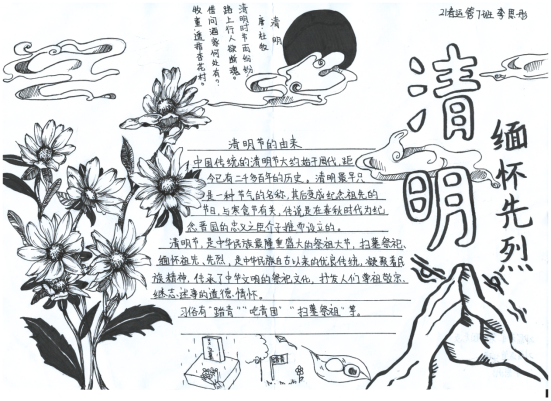 21春运管7班 李思彤
清明
唐·杜牧
清明时节雨纷纷
路上行人欲断魂。
借问酒家何处有？
牧童遥指杏花村。
清明
缅怀先烈
清明节的由来
中国传统的清明节大约始于周代，距
今已有二千多百年的历史。清明最早只
是一种节气的名称，其后变成纪念祖先的
节日，与寒食节有关，传说是在春秋时代为纪
念晋国的忠义之臣介子推而设立的。
清明节，是中华民族最隆重盛大的祭祖大节，扫墓祭祀、
缅怀祖先、先烈，是中华民族自古以来的优良传统，凝聚着民
族精神，传承了中华文明的祭祀文化，抒发人们尊祖敬宗、
继志述事的道德情怀。
习俗有"踏青""吃青团""扫墓祭祖"等。